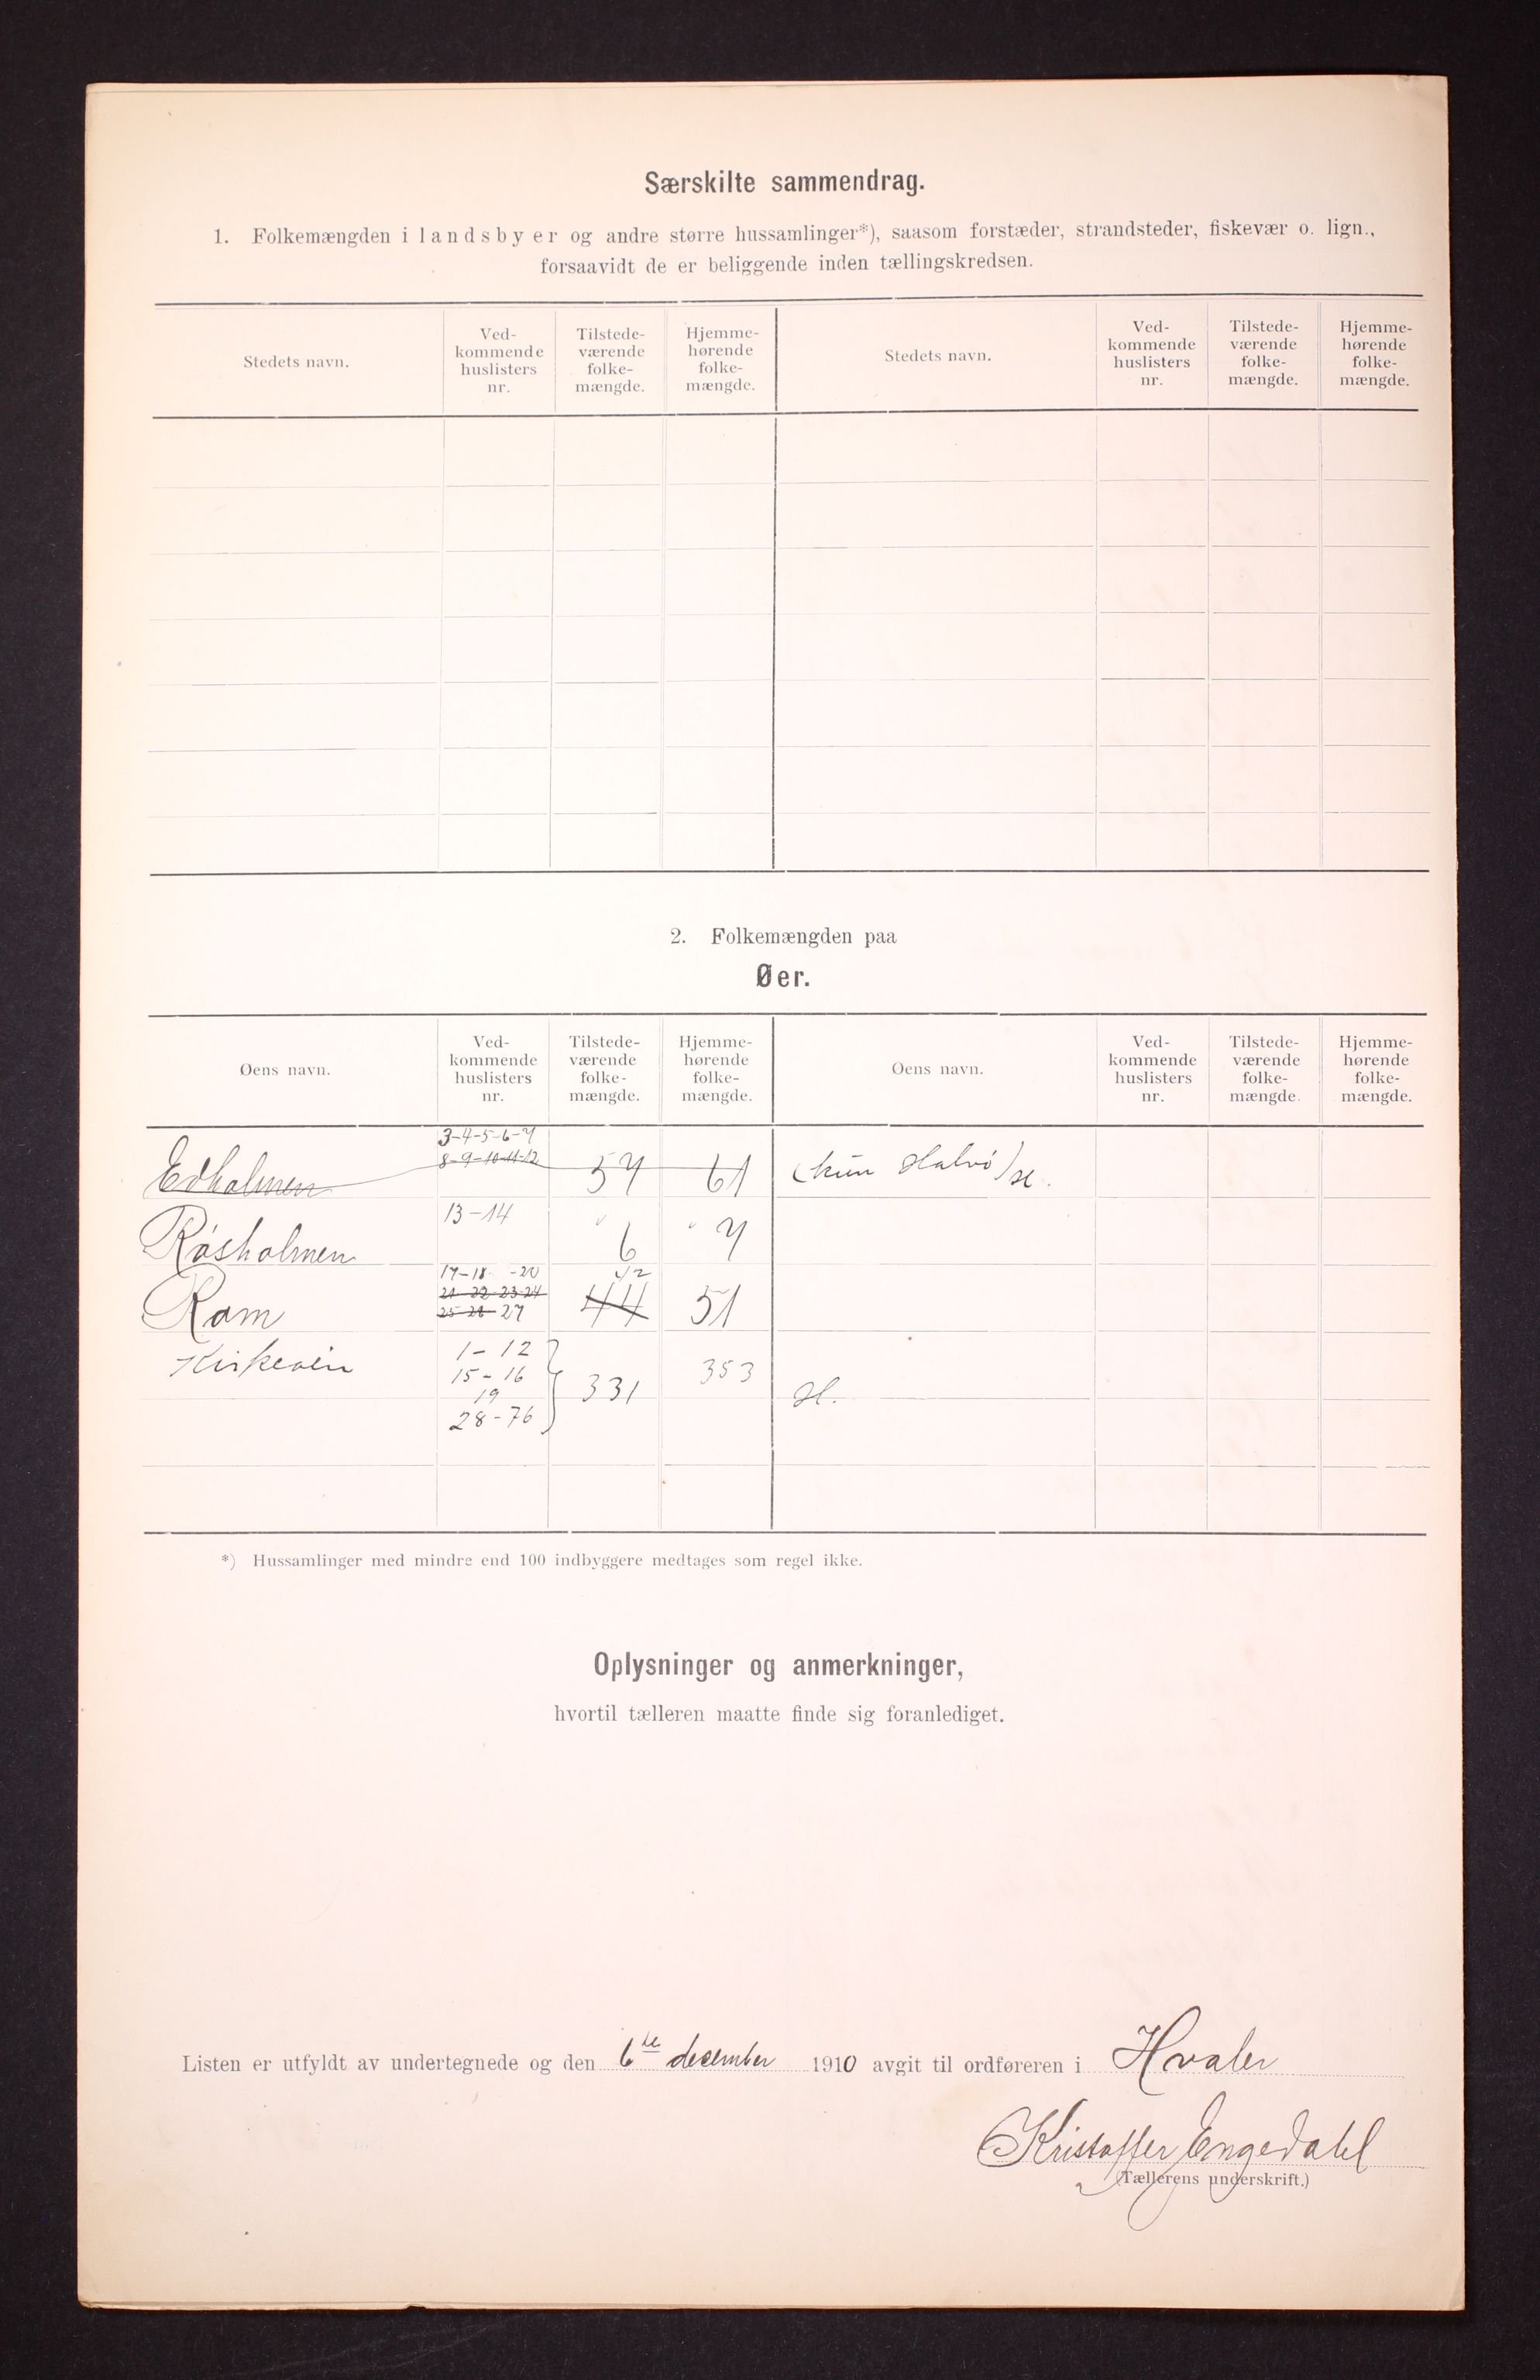 Særskilte sammendrag.
1. Folkemængden i landsbyer og andre større hussamlinger*), saasom forstæder, strandsteder, fiskevær o. lign.,
forsaavidt de er beliggende inden tællingskredsen.
Stedets navn. Ved-kommende huslisters nr. Tilstede-værende folke-mængde. Hjemme-hørende folke-mængde. Stedets navn. Ved-kommende huslisters nr. Tilstede-værende folke-mængde. Hjemme-hørende folke-mængde.
2. Folkemængden paa
Øer.
Øens navn. Ved-kommende huslisters nr. Tilstede-værende folke-mængde. Hjemme-hørende folke-mængde. Øens navn. Ved-kommende huslisters nr. Tilstede-værende folke-mængde. Hjemme-hørende folke-mængde.
3-4-5-6-7
8-9-10-11-12
Edholmen 57 61 (kun Halvö)
13-14
Røsholmen 6 7
17-18 -20 42
21-22-23-24
Ram 25-26-27 44 51
Kirkeøen 1-12
15-16 331 353
19
28-76
*) Hussamlinger med mindre end 100 indbyggere medtages som regel ikke.
Oplysninger og anmerkninger,
hvortil tælleren maatte finde sig foranlediget.
Listen er utfyldt av undertegnede og den 6te december 1910 avgit til ordføreren i Hvaler
Kristoffer Engedahl
(Tællerens underskrift.)